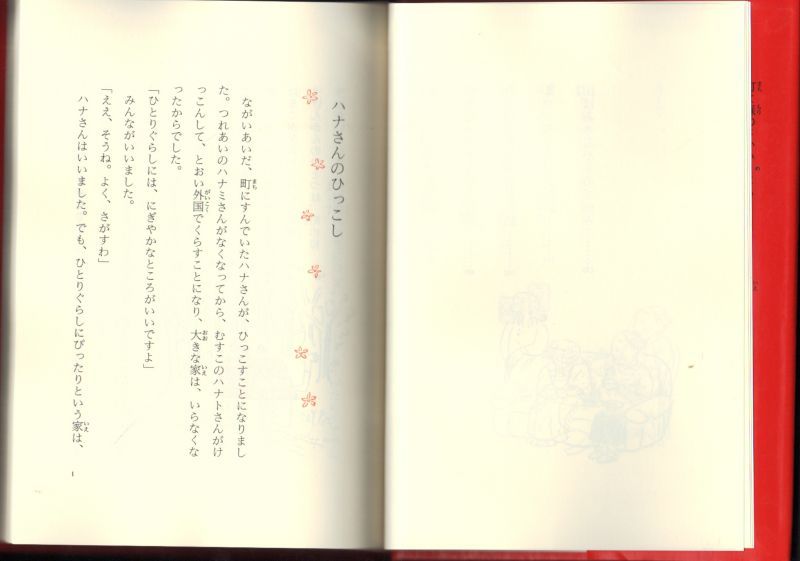 ハナさんのひっこし
ながいあいだ、町にすんでいたハナさんが、ひっこすことになりまし
た。つれあいのハナミさんがなくなってから、むすこのハナトさんがけ
っこんして、とおい外国でくらすことになり、大きな家は、いらなくな
ったからでした。
「ひとりぐらしには、にぎやかなところがいいですよ」
みんながいいました。
「ええ、そうね。よく、さがすわ」
ハナさんはいいました。でも、ひとりぐらしにぴったりという家は、
1